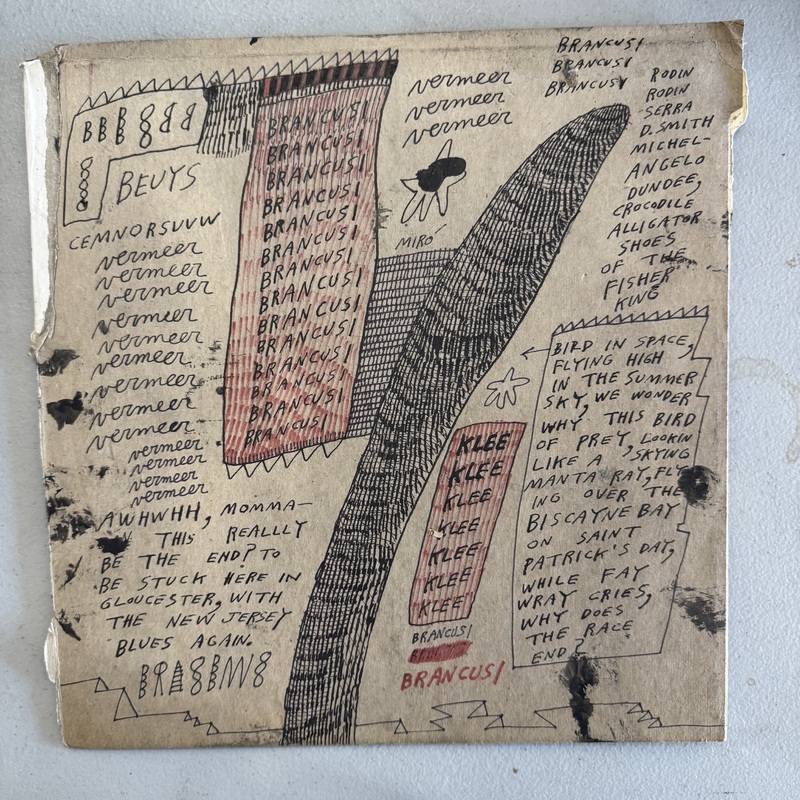 BRANCUSI
BRANCUSI
BRANCUSI
vermeer
vermeer
vermeer
RODIN
RODIN
SERRA
D. SMITH
MICHEL-
ANGELO
DUNDEE,
CROCODILE
ALLIGATOR
SHOES
OF THE
FISHER
KING
BEUYS
CEMNORSUVW
vermeer
vermeer
vermeer
vermeer
vermeer
vermeer
vermeer
vermeer
vermeer
vermeer
vermeer
vermeer
vermeer
BRANCUSI
BRANCUSI
BRANCUSI
BRANCUSI
BRANCUSI
BRANCUSI
BRANCUSI
BRANCUSI
BRANCUSI
BRANCUSI
BRANCUSI
BRANCUSI
BRANCUSI
BRANCUSI
MIRÓ
BIRD IN SPACE,
FLYING HIGH
IN THE SUMMER
SKY, WE WONDER
WHY THIS BIRD
OF PREY, LOOKIN
LIKE A SKYING
MANTA RAY, FLY-
ING OVER THE
BISCAYNE BAY
ON SAINT
PATRICK'S DAY,
WHILE FAY
WRAY CRIES,
WHY DOES
THE RACE
END?
KLEE
KLEE
KLEE
KLEE
KLEE
KLEE
KLEE
BRANCUSI
BRANCUSI
AWHWHH, MOMMA—
THIS REALLLY
BE THE END? TO
BE STUCK HERE IN
GLOUCESTER, WITH
THE NEW JERSEY
BLUES AGAIN.